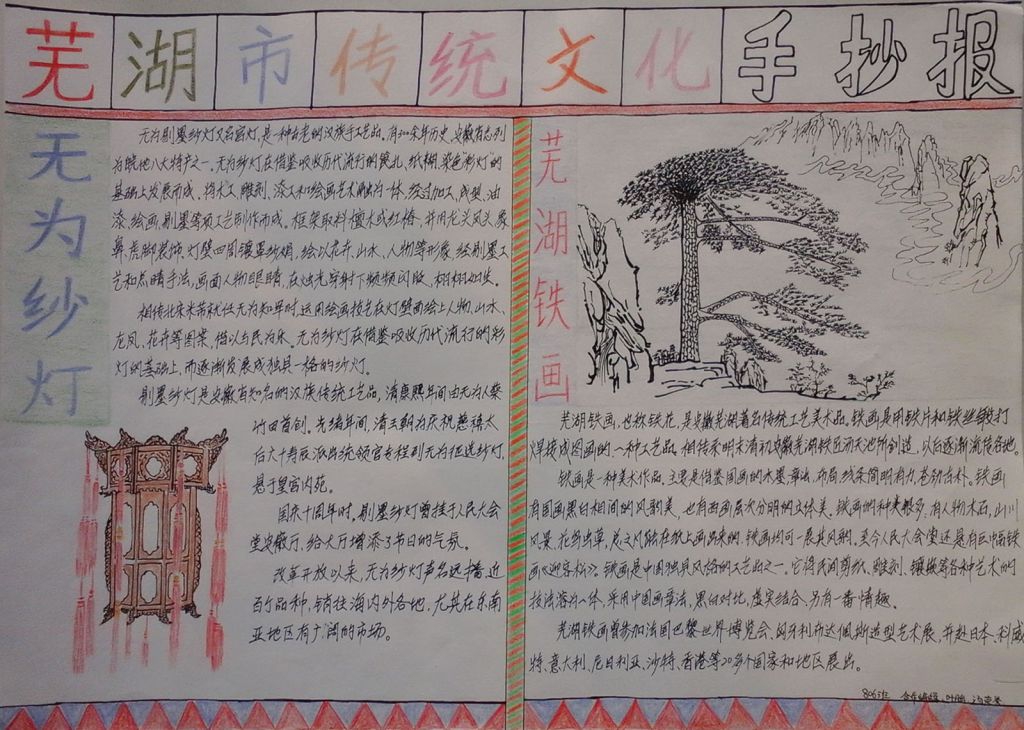 芜湖市传统文化手抄报
无为纱灯
无为剔墨纱灯又名宫灯,是一种古老的汉族手工艺品,有300余年历史,安徽省志列
为皖地八大特产之一。无为纱灯在借鉴吸收历代流行的镂孔、纸糊、染色彩灯的
基础上发展而成,将木工、雕刻、漆工和绘画艺术融为一体,经过加工、成型、油
漆、绘画、剔墨等项工艺制作而成。框架取料檀木或红椿,并用龙头凤头、象
鼻、虎脚装饰,灯壁四周镶罩纱绢,绘以花卉、山水、人物等形象,经剔墨工
艺和点睛手法,画面人物眼睛,在烛光穿射下频频闪眨,栩栩如生。
相传北宋米芾就任无为知军时,运用绘画技艺在灯壁面绘上人物、山水、
龙凤、花卉等图案,借以与民为乐。无为纱灯在借鉴吸收历代流行的彩
灯的基础上,而逐渐发展成独具一格的纱灯。
剔墨纱灯是安徽省知名的汉族传统工艺品,清康熙年间由无为人桑
竹田首创。光绪年间,清王朝为庆祝慈禧太
后六十寿辰派出统领官专程到无为征选纱灯,
悬于皇宫内苑。
国庆十周年时,剔墨纱灯曾挂于人民大会
堂安徽厅,给大厅增添了节日的气氛。
改革开放以来,无为纱灯声名远播,近
百个品种,销往海内外各地,尤其在东南
亚地区有广阔的市场。
芜湖铁画
芜湖铁画,也称铁花,是安徽芜湖著名传统工艺美术品。铁画是用铁片和铁丝锻打
焊接成图画的一种工艺品,相传系明末清初安徽芜湖铁匠汤天池所创造,以后逐渐流传各地。
铁画是一种美术作品,主要是借鉴国画的水墨章法,布局线条简明有力,苍劲古朴。铁画
有国画黑白相间的风韵美,也有西画层次分明的立体美。铁画的种类颇多,有人物木石,山川
风景,花卉虫草,总之凡能在纸上画出来的,铁画均可一展其风韵。至今人民大会堂还悬有巨幅铁
画《迎客松》。铁画是中国独具风格的工艺品之一。它将民间剪纸、雕刻、镶嵌等各种艺术的
技法溶为一体,采用中国画章法,黑白对比,虚实结合,另有一番情趣。
芜湖铁画曾参加法国巴黎世界博览会、匈牙利布达佩斯造型艺术展,并赴日本、科威
特、意大利、尼日利亚、沙特、香港等20多个国家和地区展出。
806班